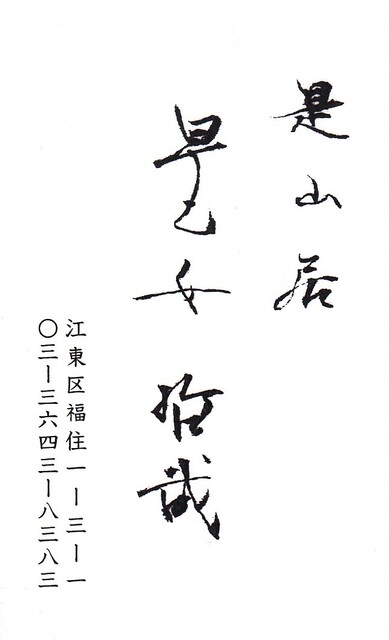 是山居
早乙女 哲哉
江東区福住一ー三ー一
〇三ー三六四三ー八三八三